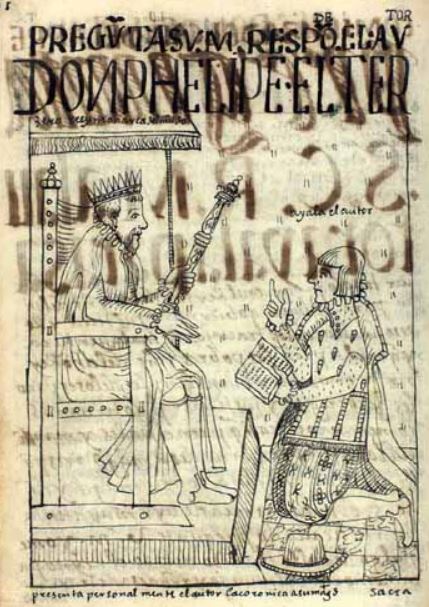 PREGṼTA SV.M. RESPŌDE.EL.AVTOR
DON PHELIPE.EL TER
zero rrey monarca del mūdo
ayala el autor
presenta personal mente el autor la coronica a su magd
sacra